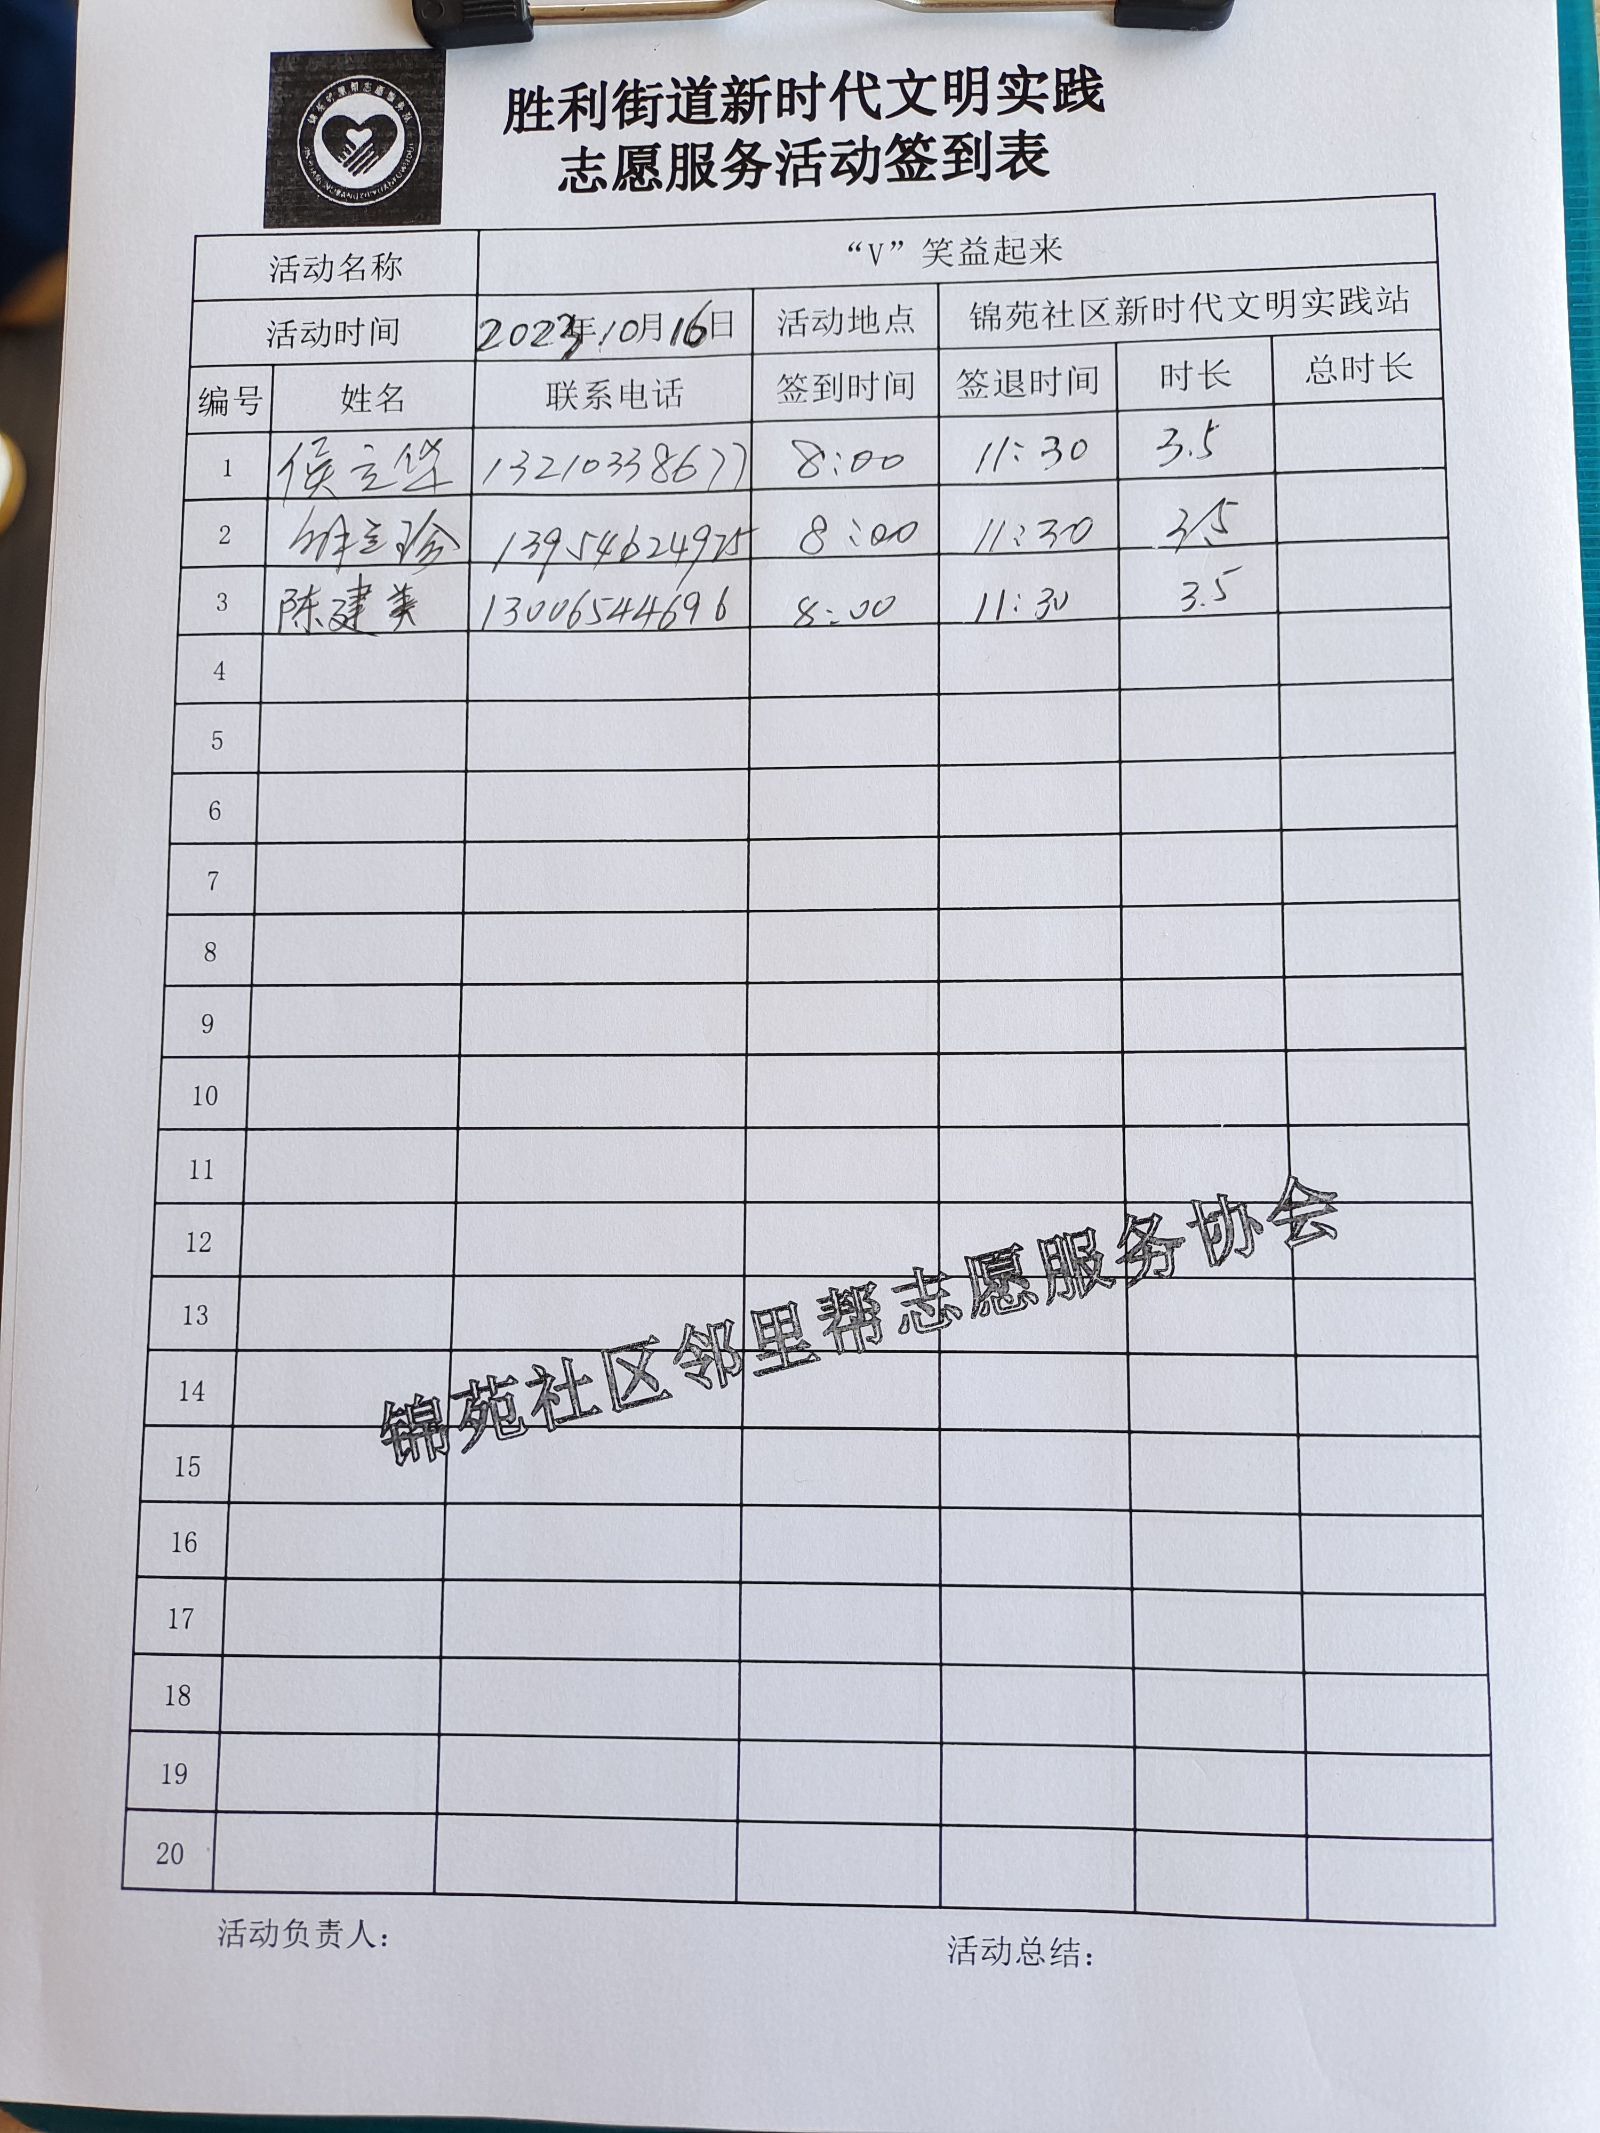 胜利街道新时代文明实践
志愿服务活动签到表
活动名称 “V”笑益起来
活动时间 2023年10月16日 活动地点 锦苑社区新时代文明实践站
编号 姓名 联系电话 签到时间 签退时间 时长 总时长
1 侯立华 13210338677 8:00 11:30 3.5
2 立珍 13954624975 8:00 11:30 3.5
3 陈建美 13006544696 8:00 11:30 3.5
4
5
6
7
8
9
10
11
12
13
14
15
16
17
18
19
20
锦苑社区邻里帮志愿服务协会
活动负责人： 活动总结：